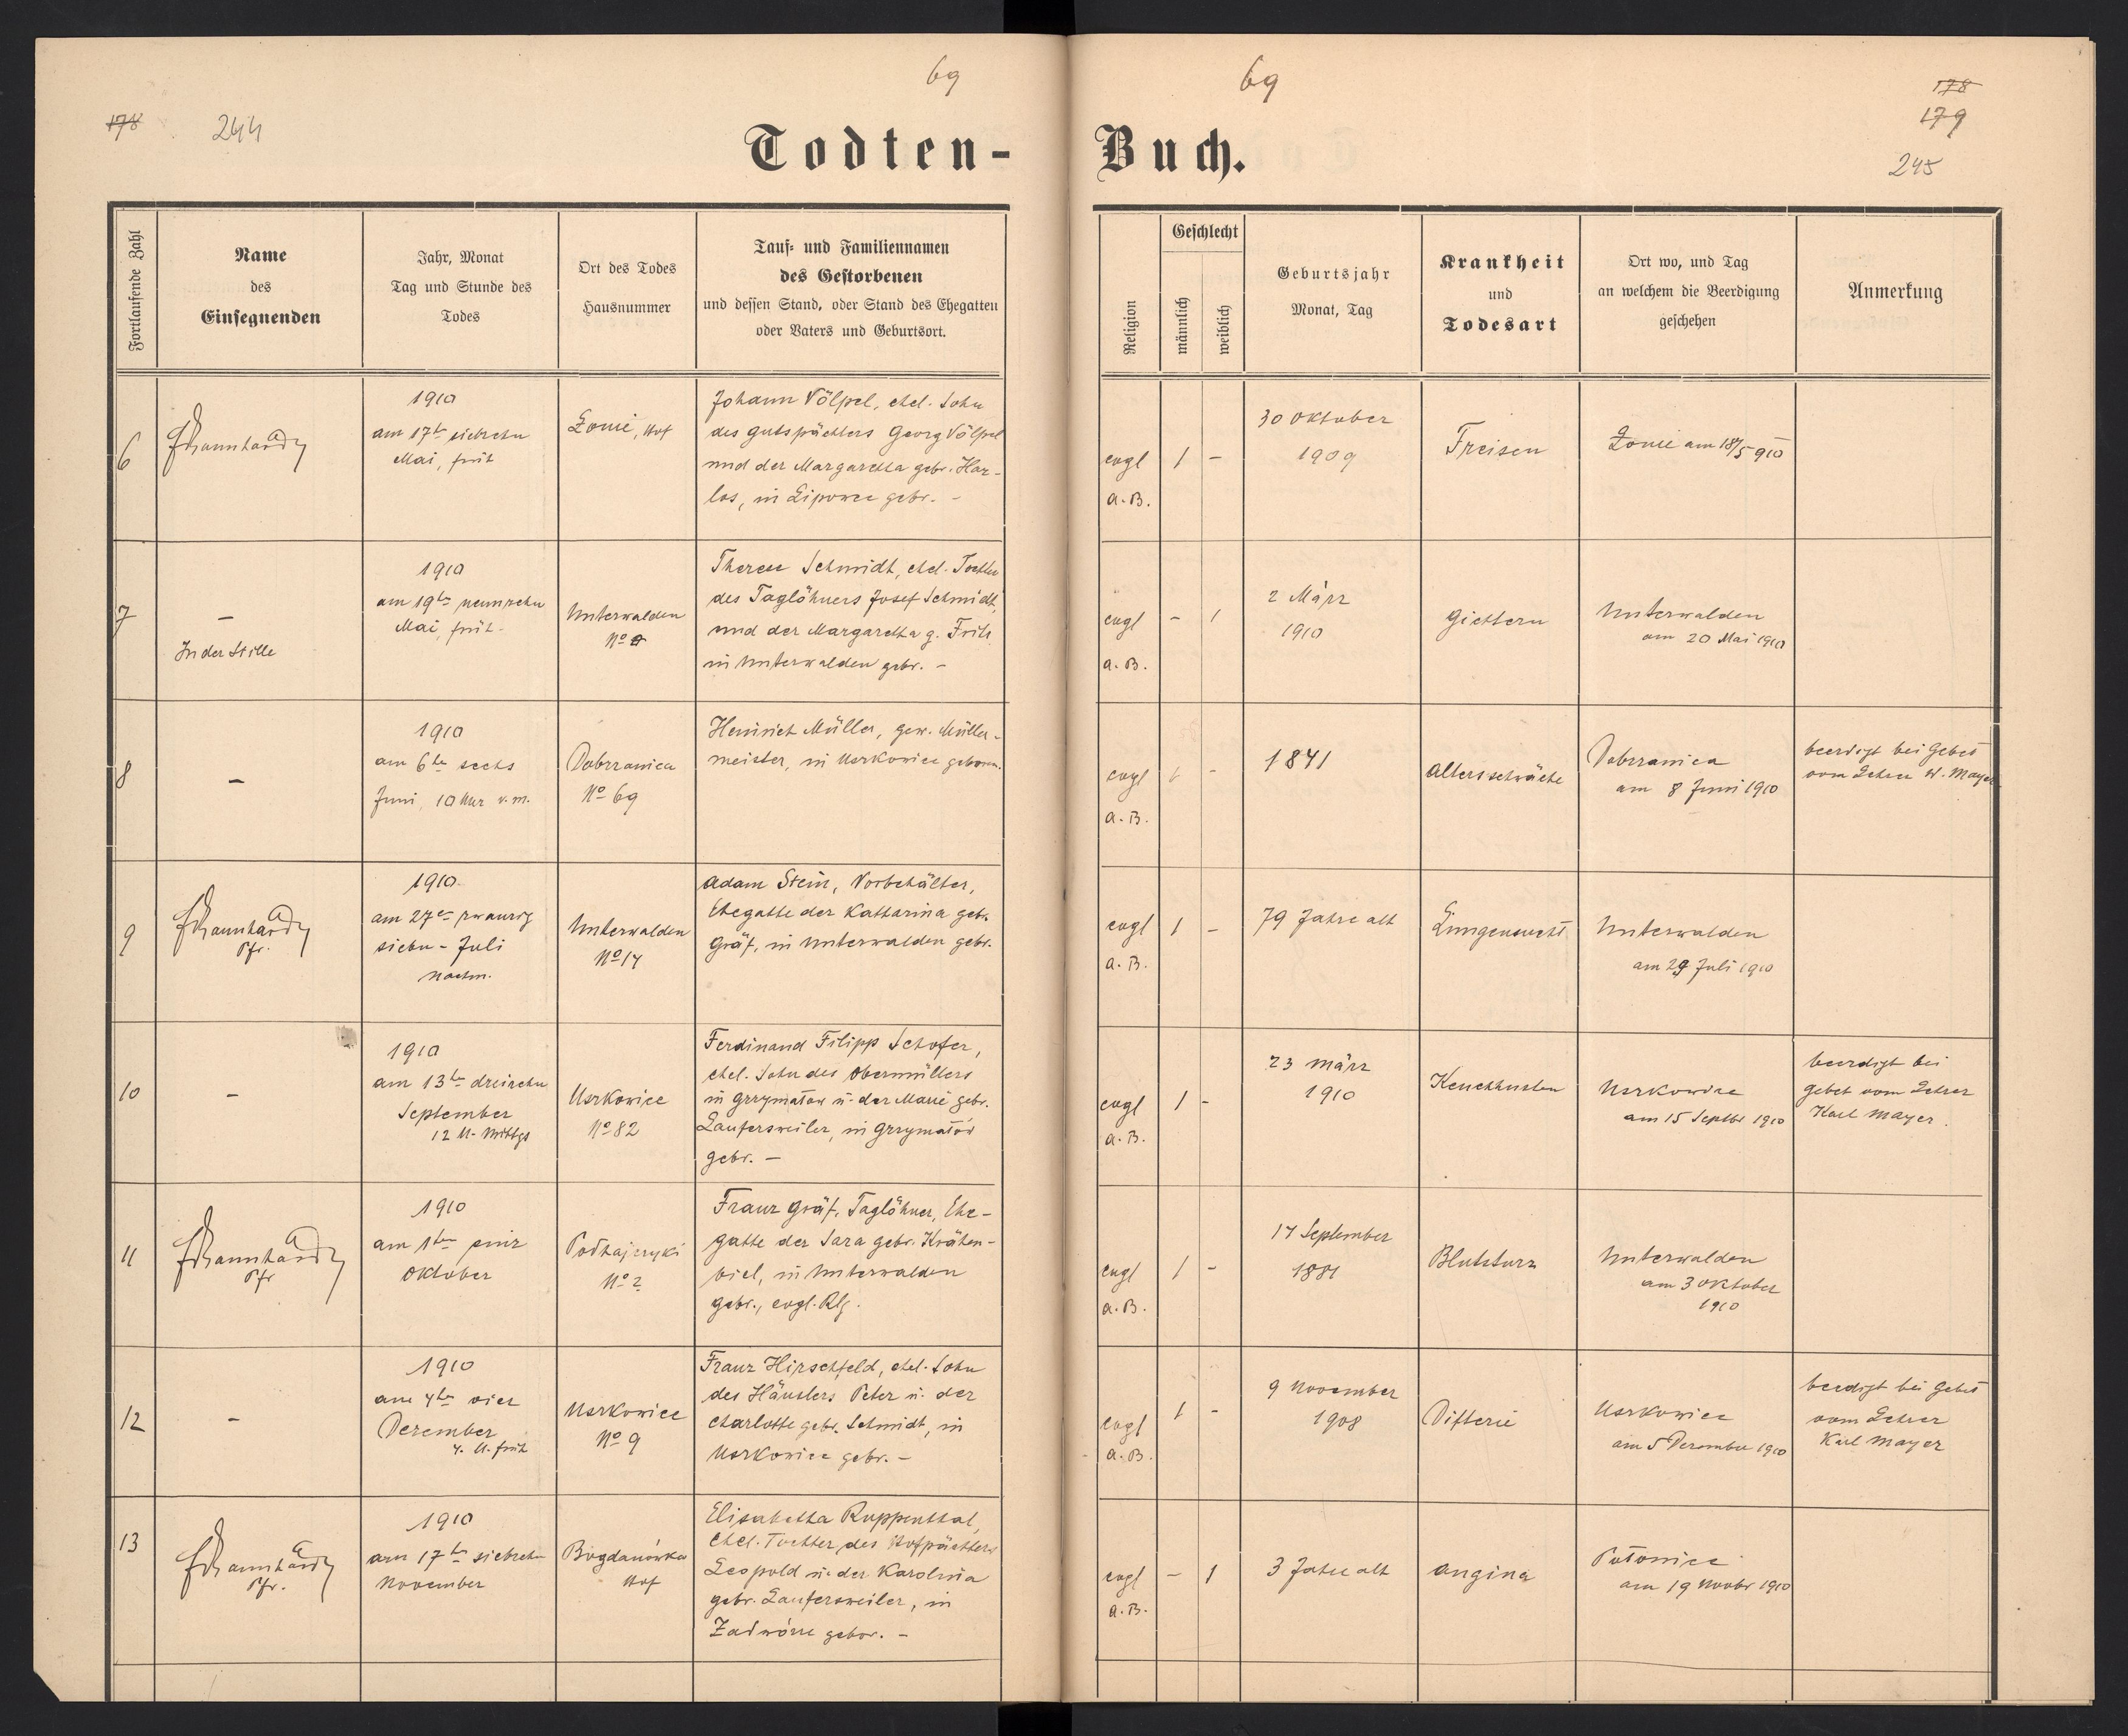 69
178
244
Todten-
69
178
179
245
Buch.
Fortlaufende Zahl
Name
des
Einsegnenden
Jahr, Monat
Tag und Stunde des
Todes
Ort des Todes
Hausnummer
Tauf- und Familiennamen
des Gestorbenen
und dessen Stand, oder Stand des Ehegatten
oder Vaters und Geburtsort.
Religion
Geschlecht
männlich
weiblich
Geburtsjahr
Monat, Tag
Krankheit
und
Todesart
Ort wo, und Tag
an welchem die Beerdigung
geschehen
Anmerkung
6
1910
am 17ten siebzehn
Mai, früh
Łonie, Hof
Johann Völpel, ehel. Sohn
des Gutspächters Georg Völpel
und der Margaretha gebr. Har-
los, in Lipowce gebr. -
evgl
a. B.
1 -
30 Oktober
1909
Freisen
Łonie am 18/5 910
7
-
In der Stille
1910
am 19ten neunzehn
Mai, früh -
Unterwalden
No
Therese Schmidt, ehel. Tochter
des Taglöhners Josef Schmidt,
und der Margaretha g. Fritz
in Unterwalden gebr. -
evgl
a. B.
- 1
2 März
1910
Gichtern
Unterwalden
am 20 Mai 1910
8
-
1910
am 6ten sechs
Juni, 10 Uhr v. m.
Dobrzanica
No 69
Heinrich Müller, gew. Müller-
meister, in Uszkowice geboren.
evgl
a. B.
1 -
1841
Altersschwäche
Dobrzanica
am 8 Juni 1910
beerdigt bei Gebet
vom Lehrer W. Mayer
9
Pfr.
1910.
am 27en zwanzig
sieben - Juli
nachm.
Unterwalden
No 14
Adam Stein, Vorbehälter,
Ehegatte der Katharina geb.
Gräf, in Unterwalden gebr.
evgl
a. B.
1 -
79 Jahre alt
Lungensucht
Unterwalden
am 29 Juli 1910
10
-
1910
am 13ten dreizehn
September
12 U. Mittgs
Uszkowice
No 82
Ferdinand Filipp Schofer,
ehel. Sohn des Obermüllers
in Grzymałow u. der Marie gebr.
Laufersweiler, in Grzymałów
gebr. -
evgl
a. B.
1 -
23 März
1910
Keuchhusten
Uszkowice
am 15 Septbr 1910
beerdigt bei
Gebet vom Lehrer
Karl Mayer.
11
Pfr
1910
am 1ten einz
Oktober
Podhajczyki
No 2
Franz Gräf, Taglöhner, Ehe-
gatte der Sara gebr. Krähen-
biel, in Unterwalden
gebr., evgl. Rlg.
evgl
a. B.
1 -
17 September
1881
Blutsturz
Unterwalden
am 3 Oktober
1910
12
-
1910
am 4ten vier
Dezember
4. U. früh
Uszkowice
No 9
Franz Hirschfeld, ehel. Sohn
des Häuslers Peter u. der
Charlotte gebr. Schmidt, in
Uszkowice gebr. -
evgl
a. B.
1 -
9 November
1908
Difterie
Uszkowice
am 5 Dezember 1910
beerdigt bei Gebet
vom Lehrer
Karl Mayer
13
Pfr.
1910
am 17ten siebzehn
November
Bogdanówka
Hof
Elisabetha Ruppenthal,
ehel. Tochter des Hofpächters
Leopold u. der Karolina
gebr. Laufersweiler, in
Zadwórze gebor. -
evgl
a. B.
- 1
3 Jahre alt
Angina
Połonice
am 19 Novbr 1910